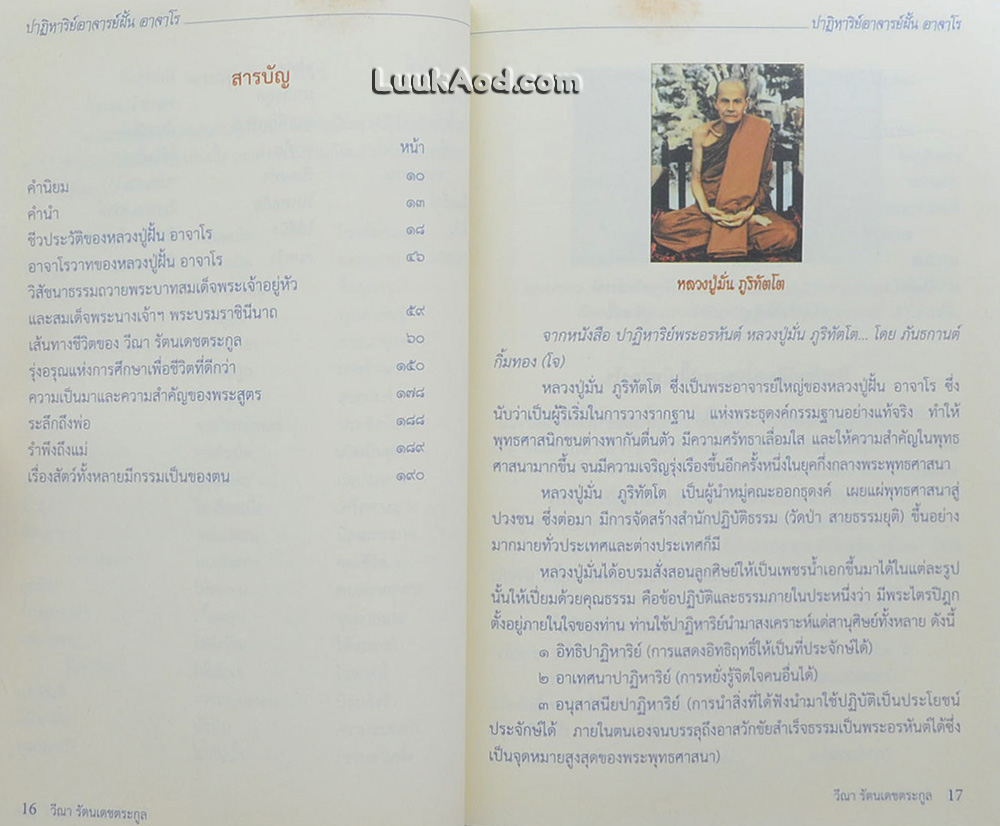 ปาฏิหาริย์อาจารย์ฝั้น อาจาโร
สารบัญ
หน้า
คำนิยม ๑๐
คำนำ ๑๓
ชีวประวัติของหลวงปู่ฝั้น อาจาโร ๑๘
อาจาโรวาทของหลวงปู่ฝั้น อาจาโร ๔๖
วิสัชนาธรรมถวายพระบาทสมเด็จพระเจ้าอยู่หัว
และสมเด็จพระนางเจ้าฯ พระบรมราชินีนาถ ๕๙
เส้นทางชีวิตของ วีณา รัตนเดชตระกูล ๖๐
รุ่งอรุณแห่งการศึกษาเพื่อชีวิตที่ดีกว่า ๑๕๐
ความเป็นมาและความสำคัญของพระสูตร ๑๗๘
ระลึกถึงพ่อ ๑๘๘
รำพึงถึงแม่ ๑๘๙
เรื่องสัตว์ทั้งหลายมีกรรมเป็นของตน ๑๙๐
16 วีณา รัตนเดชตระกูล
LuukAod.com
ปาฏิหาริย์อาจารย์ฝั้น อาจาโร
หลวงปู่มั่น ภูริทัตโต
จากหนังสือ ปาฏิหาริย์พระอรหันต์ หลวงปู่มั่น ภูริทัตโต... โดย ภันธกานต์
กิ้มทอง (โจ)
หลวงปู่มั่น ภูริทัตโต ซึ่งเป็นพระอาจารย์ใหญ่ของหลวงปู่ฝั้น อาจาโร ซึ่ง
นับว่าเป็นผู้ริเริ่มในการวางรากฐาน แห่งพระธุดงค์กรรมฐานอย่างแท้จริง ทำให้
พุทธศาสนิกชนต่างพากันตื่นตัว มีความศรัทธาเลื่อมใส และให้ความสำคัญในพุทธ
ศาสนามากขึ้น จนมีความเจริญรุ่งเรืองขึ้นอีกครั้งหนึ่งในยุคกึ่งกลางพระพุทธศาสนา
หลวงปู่มั่น ภูริทัตโต เป็นผู้นำหมู่คณะออกธุดงค์ เผยแผ่พุทธศาสนาสู่
ปวงชน ซึ่งต่อมา มีการจัดสร้างสำนักปฏิบัติธรรม (วัดป่า สายธรรมยุติ) ขึ้นอย่าง
มากมายทั่วประเทศและต่างประเทศก็มี
หลวงปู่มั่นได้อบรมสั่งสอนลูกศิษย์ให้เป็นเพชรน้ำเอกขึ้นมาได้ในแต่ละรูป
นั้นให้เปี่ยมด้วยคุณธรรม คือข้อปฏิบัติและธรรมภายในประหนึ่งว่า มีพระไตรปิฎก
ตั้งอยู่ภายในใจของท่าน ท่านใช้ปาฏิหาริย์นำมาสงเคราะห์แต่สานุศิษย์ทั้งหลาย ดังนี้
๑ อิทธิปาฏิหาริย์ (การแสดงอิทธิฤทธิ์ให้เป็นที่ประจักษ์ได้)
๒ อาเทศนาปาฏิหาริย์ (การหยั่งรู้จิตใจคนอื่นได้)
๓ อนุสาสนียปาฏิหาริย์ (การนำสิ่งที่ได้ฟังนำมาใช้ปฏิบัติเป็นประโยชน์
ประจักษ์ได้ ภายในตนเองจนบรรลุถึงอาสวักขัยสำเร็จธรรมเป็นพระอรหันต์ได้ซึ่ง
เป็นจุดหมายสูงสุดของพระพุทธศาสนา)
วีณา รัตนเดชตระกูล 17